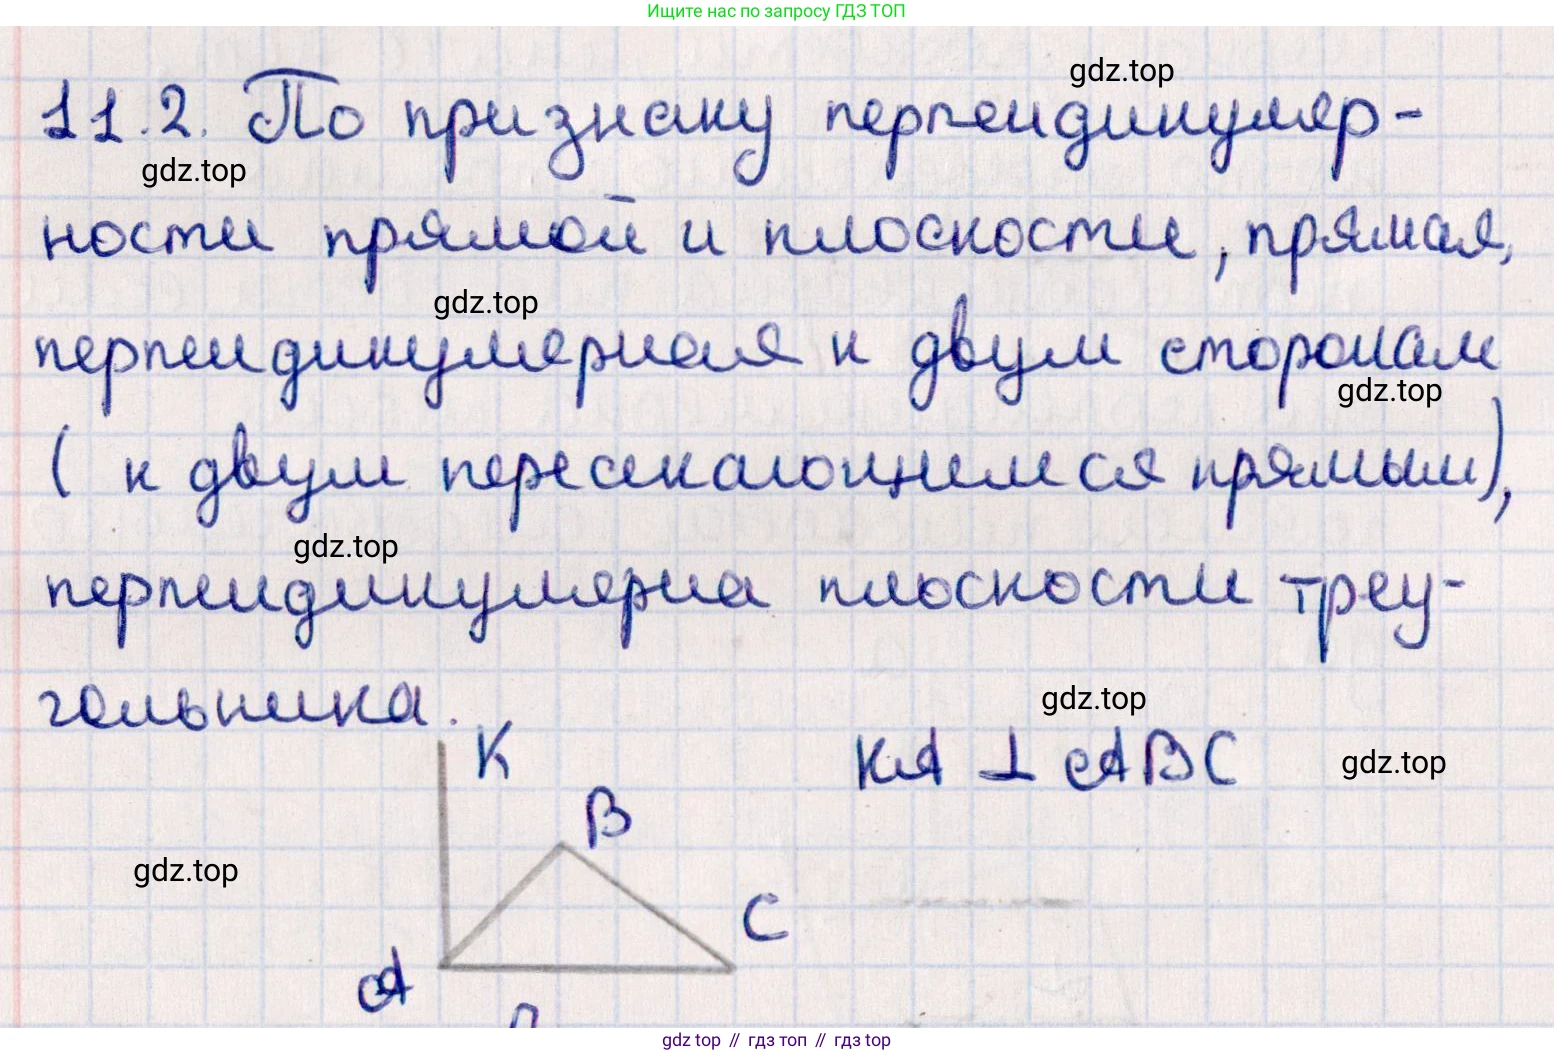 Ищите нас по запросу ГДЗ ТОП
gdz.top
11.2. По признаку перпендикуляр-
gdz.top
ности прямой и плоскости, прямая,
gdz.top
перпендикулярная к двум сторонам
gdz.top
( к двум пересекающимся прямым),
gdz.top
перпендикулярна плоскости треу-
гольника.
gdz.top
K
KA ⊥ ABC
gdz.top
B
gdz.top
C
A
gdz top // гдз топ // гдз top